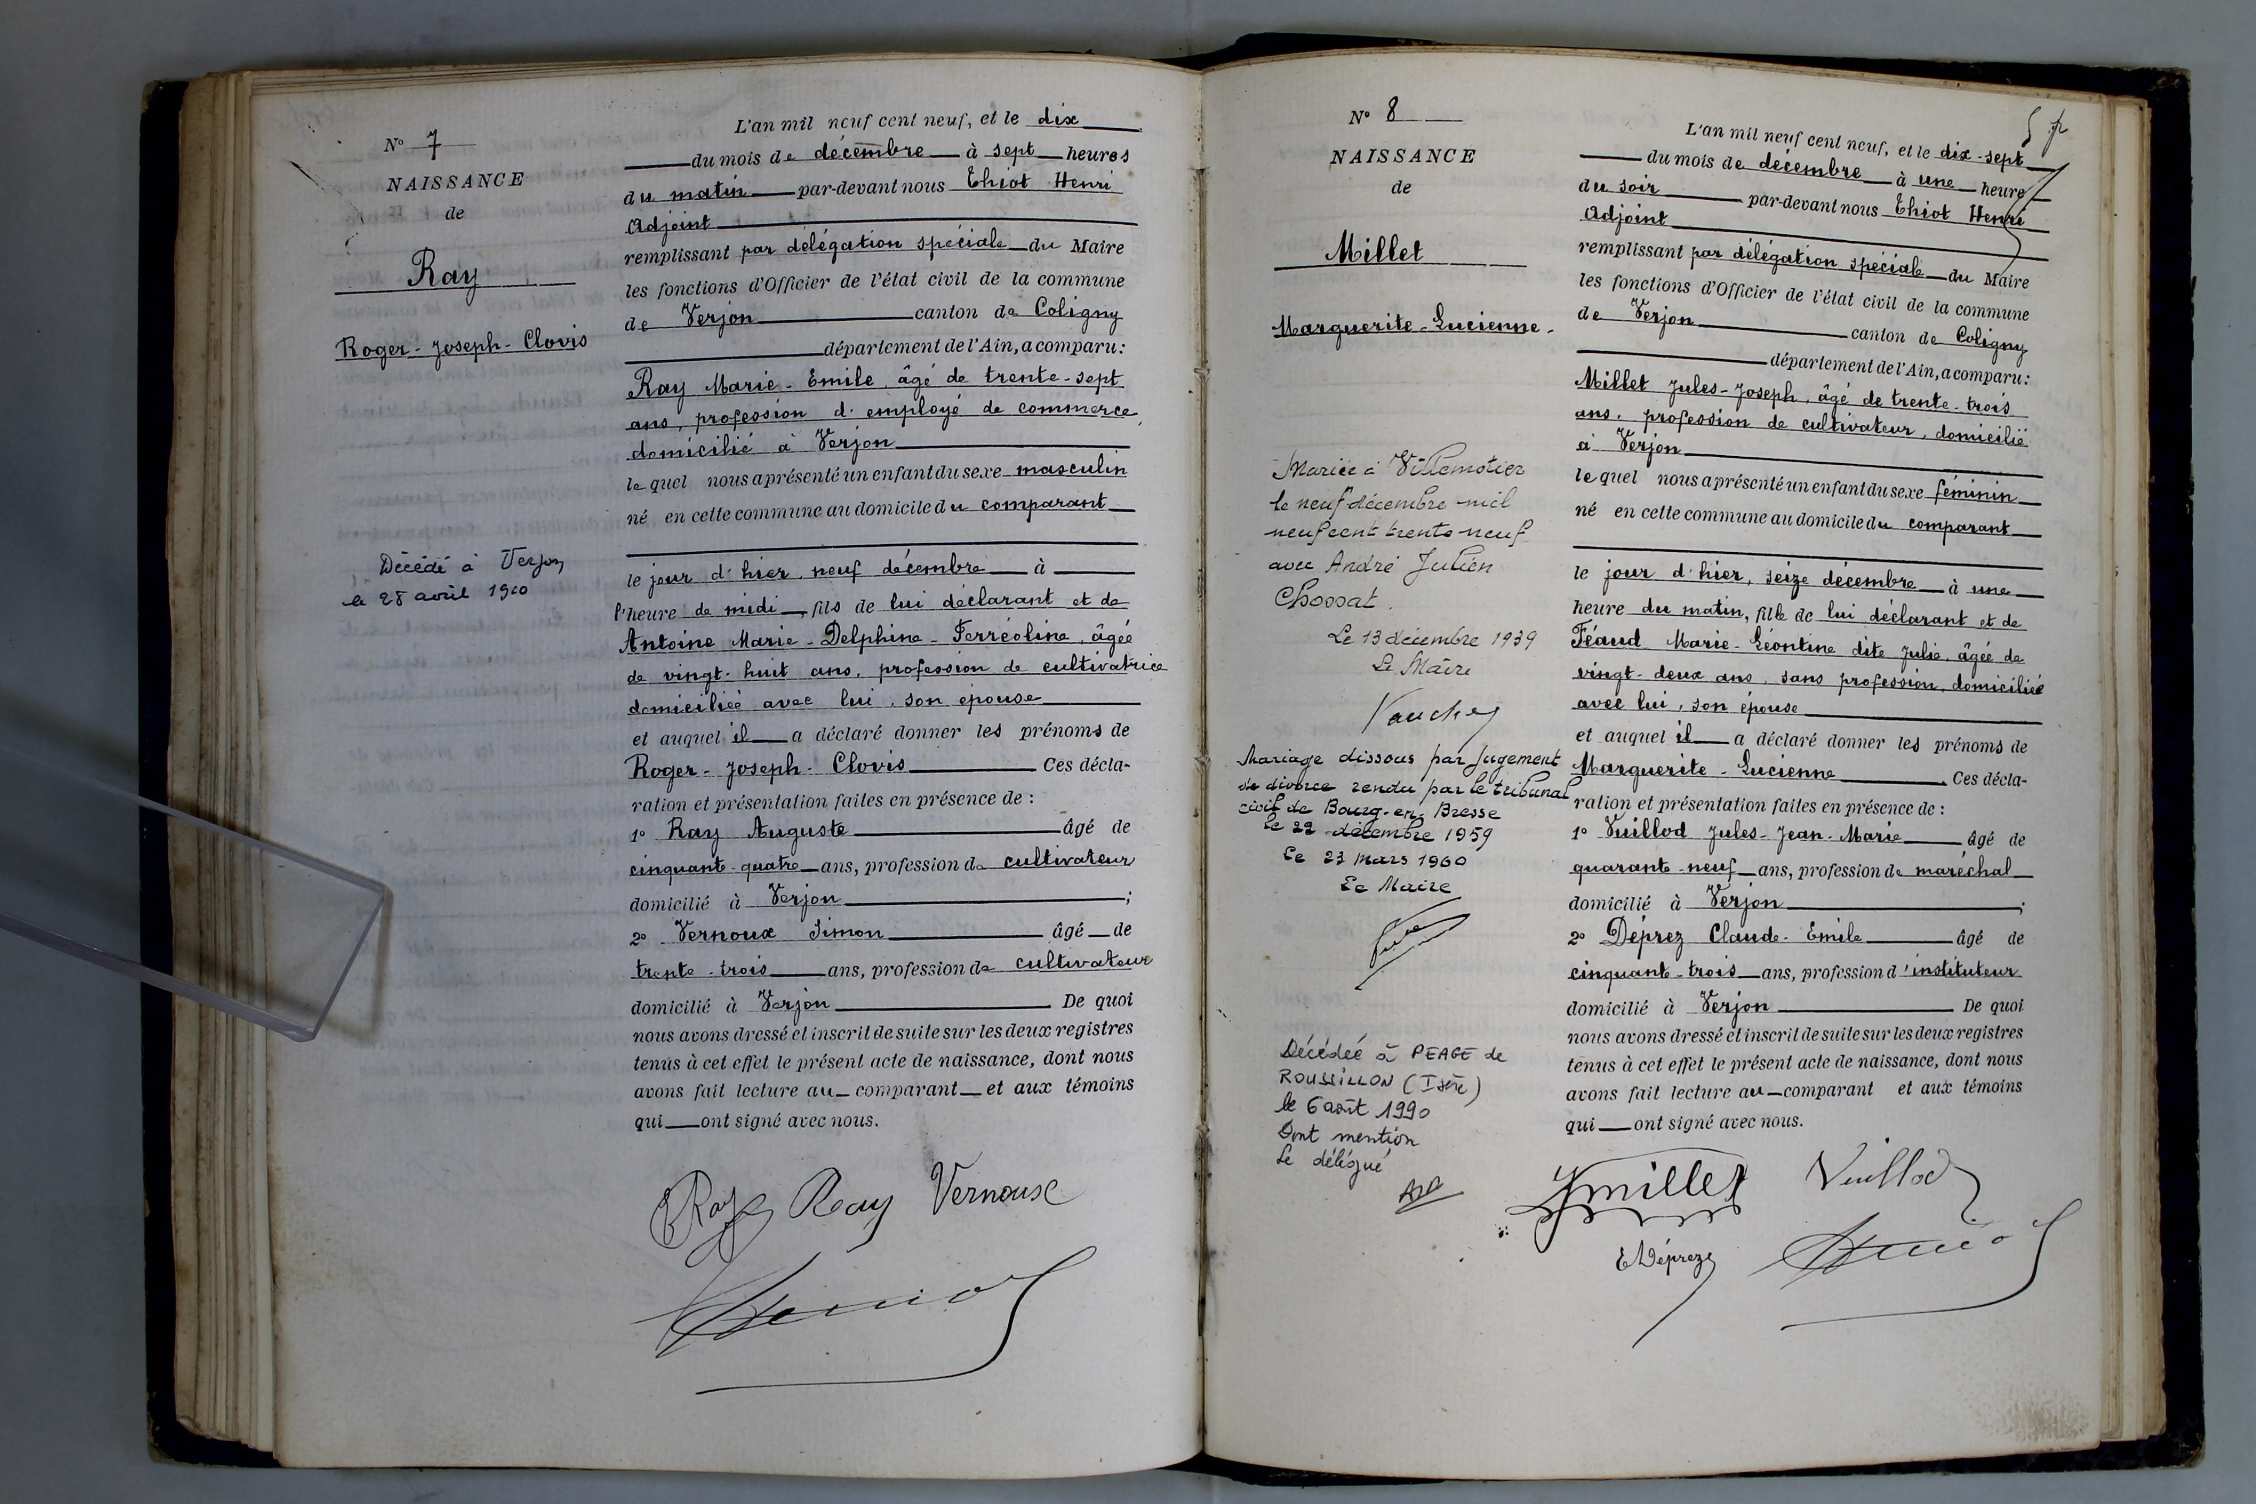 N° 7
NAISSANCE
de
Ray
Roger-Joseph-Clovis
Décédé à Verjon
le 28 avril 1910
L'an mil neuf cent neuf, et le dix
du mois de décembre à sept heures
du matin par-devant nous Thiot Henri
Adjoint
remplissant par délégation spéciale du Maire
les fonctions d'Officier de l'état civil de la commune
de Verjon canton de Coligny
département de l'Ain, a comparu:
Ray Marie-Emile, âgé de trente-sept
ans, profession d'employé de commerce,
domicilié à Verjon
lequel nous a présenté un enfant du sexe masculin
né en cette commune au domicile du comparant
le jour d'hier, neuf décembre à
l'heure de midi, fils de lui déclarant et de
Antoine Marie-Delphine-Ferréoline, âgée
de vingt-huit ans, profession de cultivatrice
domiciliée avec lui, son épouse
et auquel il a déclaré donner les prénoms de
Roger-Joseph-Clovis Ces décla-
ration et présentation faites en présence de:
1° Ray Auguste âgé de
cinquante-quatre ans, profession de cultivateur
domicilié à Verjon;
2° Vernoux Simon âgé de
trente-trois ans, profession de cultivateur
domicilié à Verjon De quoi
nous avons dressé et inscrit de suite sur les deux registres
tenus à cet effet le présent acte de naissance, dont nous
avons fait lecture au comparant et aux témoins
qui ont signé avec nous.
ERay Ray Vernoux
N° 8
NAISSANCE
de
Millet
Marguerite-Lucienne.
Mariée à Villemotier
le neuf décembre mil
neuf cent trente neuf
avec André Julien
Chossat.
Le 13 décembre 1939
Le Maire
Mariage dissous par Jugement
de divorce rendu par le tribunal
civil de Bourg-en-Bresse
le 22 décembre 1959
Le 23 Mars 1960
Le Maire
Décédée à PEAGE de
ROUSSILLON (Isère)
le 6 août 1990
Dont mention
Le délégué
L'an mil neuf cent neuf, et le dix-sept
du mois de décembre à une heure
du soir par-devant nous Thiot Henri
Adjoint
remplissant par délégation spéciale du Maire
les fonctions d'Officier de l'état civil de la commune
de Verjon canton de Coligny
département de l'Ain, a comparu:
Millet Jules-Joseph, âgé de trente-trois
ans, profession de cultivateur, domicilié
à Verjon
lequel nous a présenté un enfant du sexe féminin
né en cette commune au domicile du comparant
le jour d'hier, seize décembre à une
heure du matin, fille de lui déclarant et de
Féaud Marie-Léontine dite Julie, âgée de
vingt-deux ans, sans profession, domiciliée
avec lui, son épouse
et auquel il a déclaré donner les prénoms de
Marguerite-Lucienne Ces décla-
ration et présentation faites en présence de:
1° Vuillod Jules-Jean-Marie âgé de
quarante-neuf ans, profession de maréchal
domicilié à Verjon;
2° Déprez Claude-Emile âgé de
cinquante-trois ans, profession d'instituteur
domicilié à Verjon De quoi
nous avons dressé et inscrit de suite sur les deux registres
tenus à cet effet le présent acte de naissance, dont nous
avons fait lecture au comparant et aux témoins
qui ont signé avec nous.
JMillet Vuillod
EDéprez